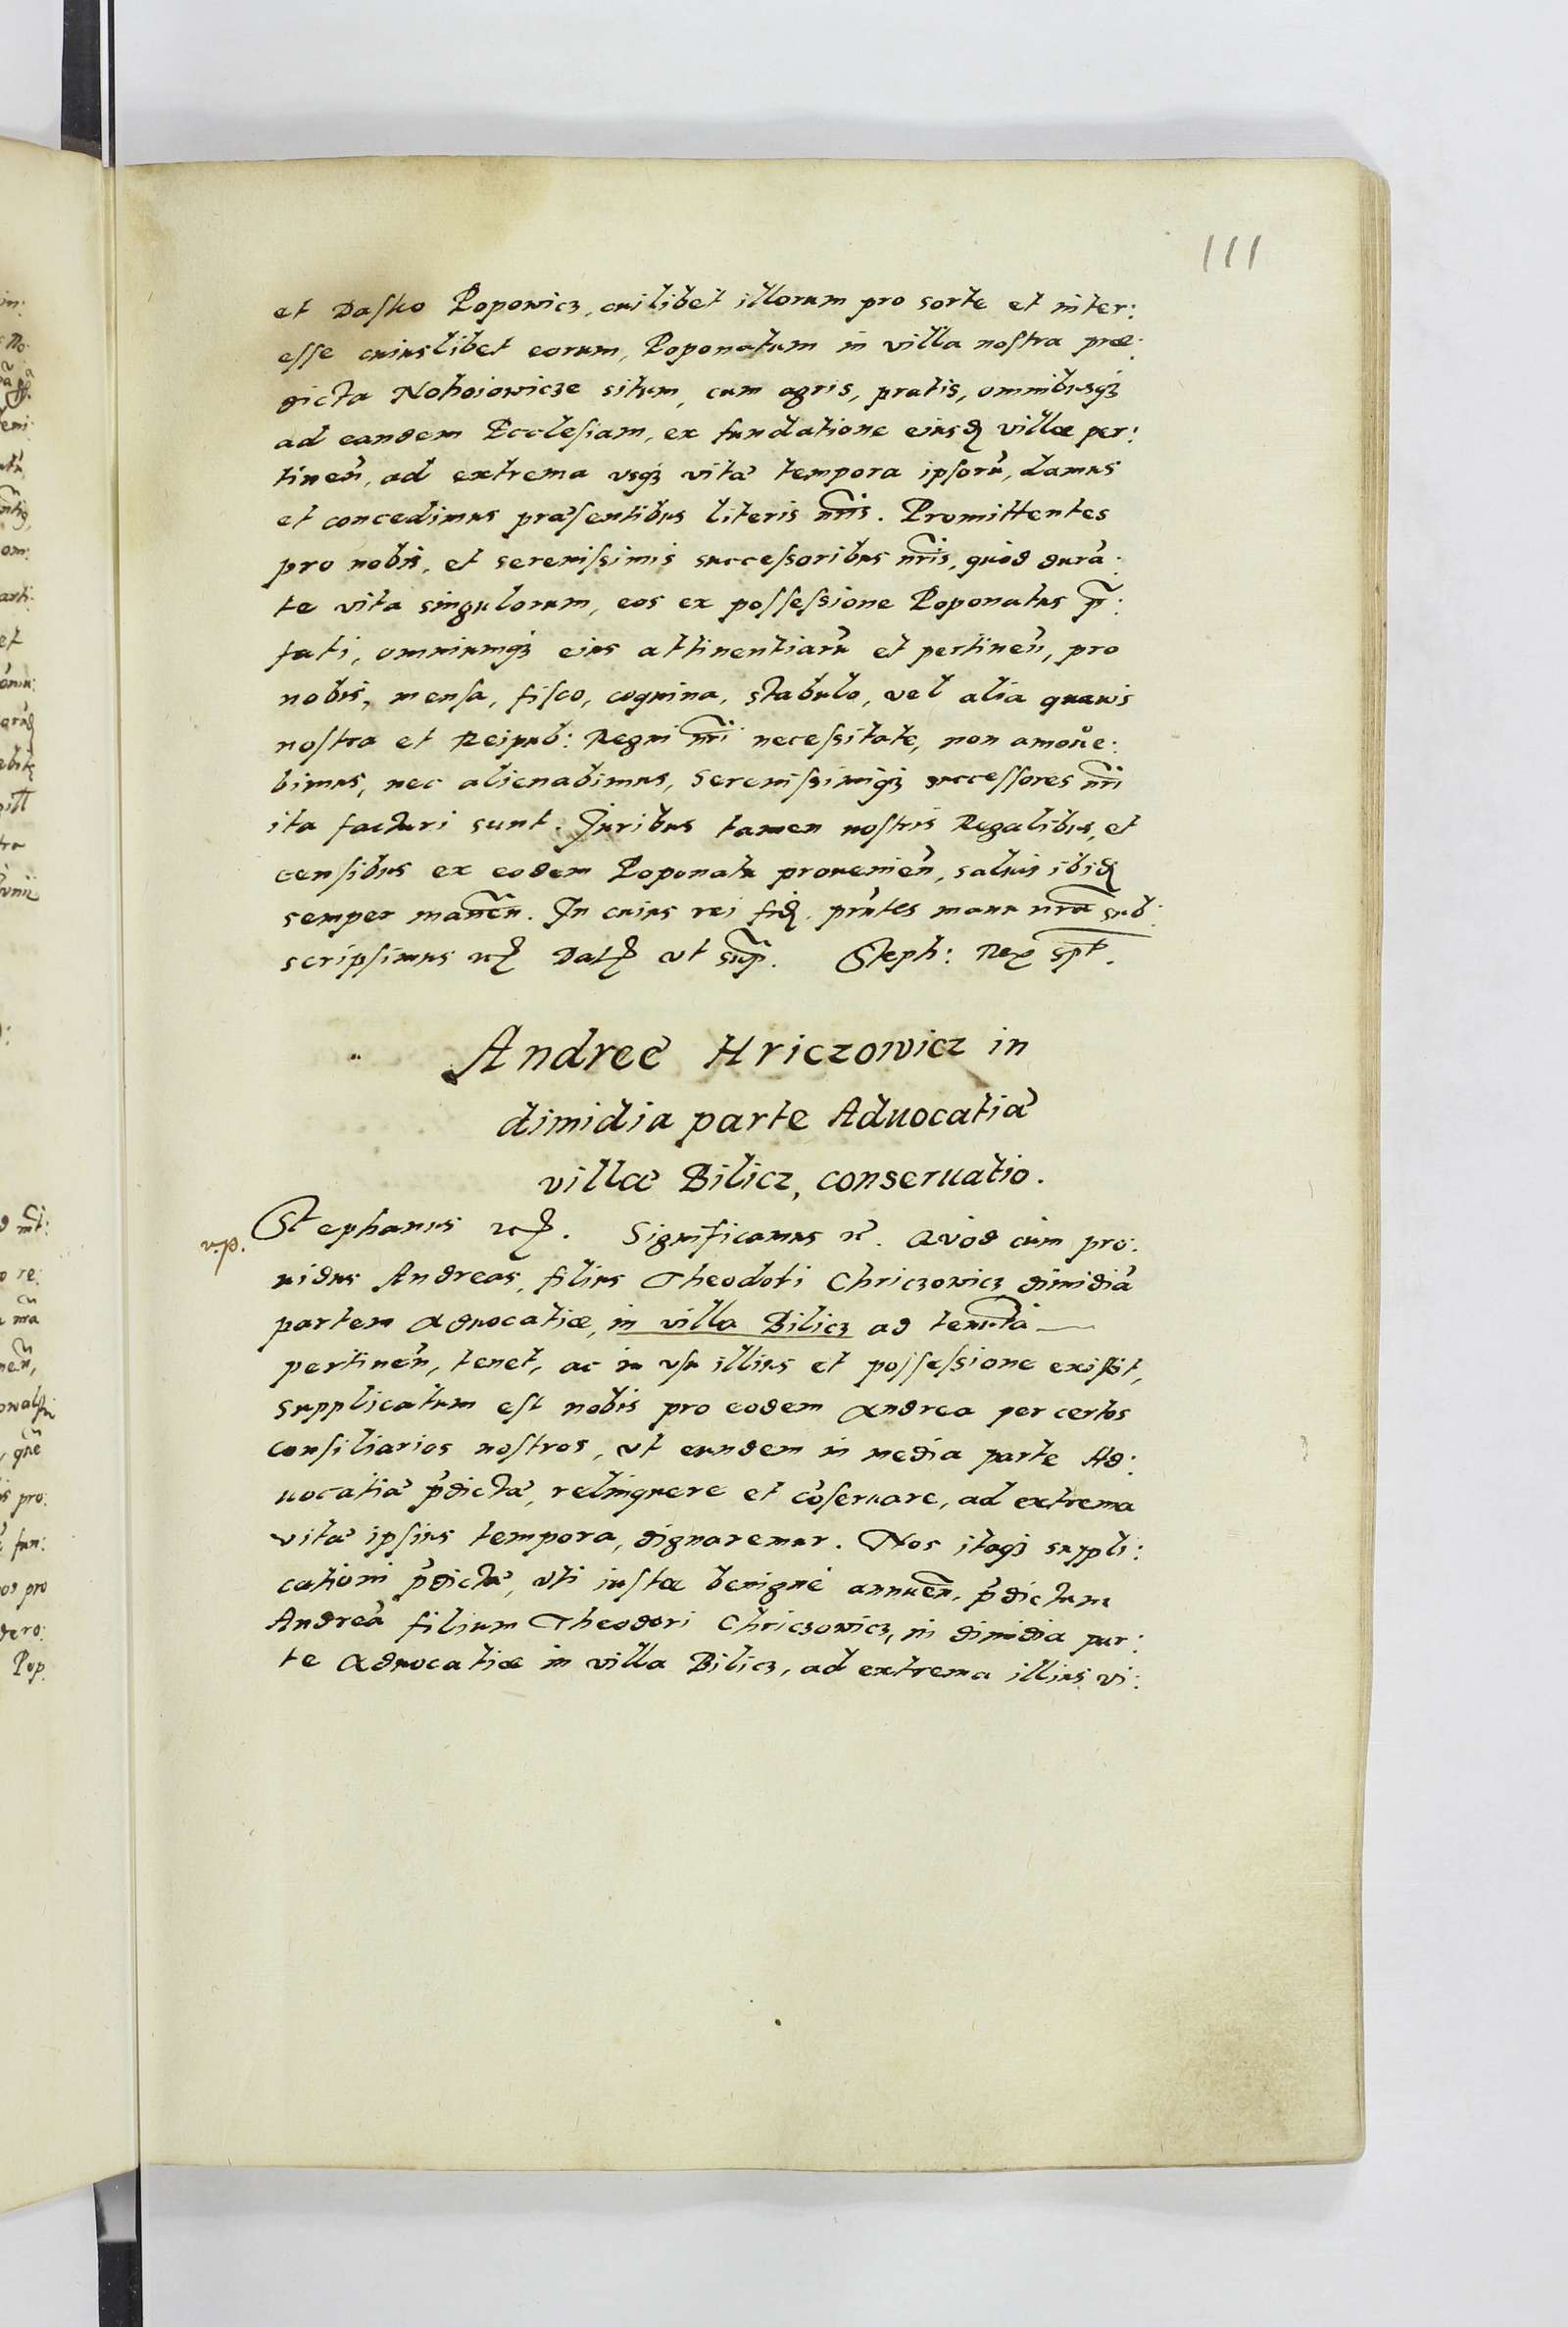 111
et Dasko Poponicz, cuilibet illorum pro sorte et inter:
esse cuiuslibet eorum, Poponatum in villa nostra præ:
dicta Nohoiowicze situm, cum agris, pratis, omnibusq3
ad eandem Ecclesiam, ex fundatione eiusd villæ per:
tineñ, ad extrema vsq3 vitæ tempora ipsorũ, damus
et concedimus præsentibus literis nr̃is. Promittentes
pro nobis, et serenissimis successoribus nr̃is, quòd durã:
te vita singulorum, eos ex possessione Poponatus p̃:
fati, omniumq3 eius attinentiarũ et pertineñ, pro
nobis, mensa, fisco, coquina, stabulo, vel alia quauis
nostra et Reipub: Regni nr̃i necessitate, non amoue:
bimus, nec alienabimus, Serenissimiq3 successores nr̃i
ita facturi sunt. Juribus tamen nostris Regalibus, et
censibus ex eodem Poponatu prouenieñ, saluis ibid
semper maneñ. In cuius rei fid. pr̃ntes manu nr̃a sub:
scripsimus etc Dat ut sup̃. Steph: Rex spt.
Andreæ Hriczowicz in
dimidia parte Aduocatiæ
villæ Bilicz, conseruatio.
v.p.
Stephanus etc. Significamus etc. Quòd cùm pro:
uidus Andreas, filius Theodoti Chriczowicz dimidiã
partem Aduocatiæ, in villa Bilicz ad tenutã
pertineñ, tenet, ac in usu illius et possessione existit,
supplicatum est nobis pro eodem Andrea per certos
consiliarios nostros, ut eundem in media parte Ad:
uocatiæ p̃dictæ, relinquere et cõseruare, ad extrema
vitæ ipsius tempora, dignaremur. Nos itaq3 suppli:
cationi p̃dictæ, uti iustæ benignè annueñ, p̃dictum
Andreã filium Theodori Chriczowicz, in dimidia par:
te Aduocatiæ in villa Bilicz, ad extrema illius vi: